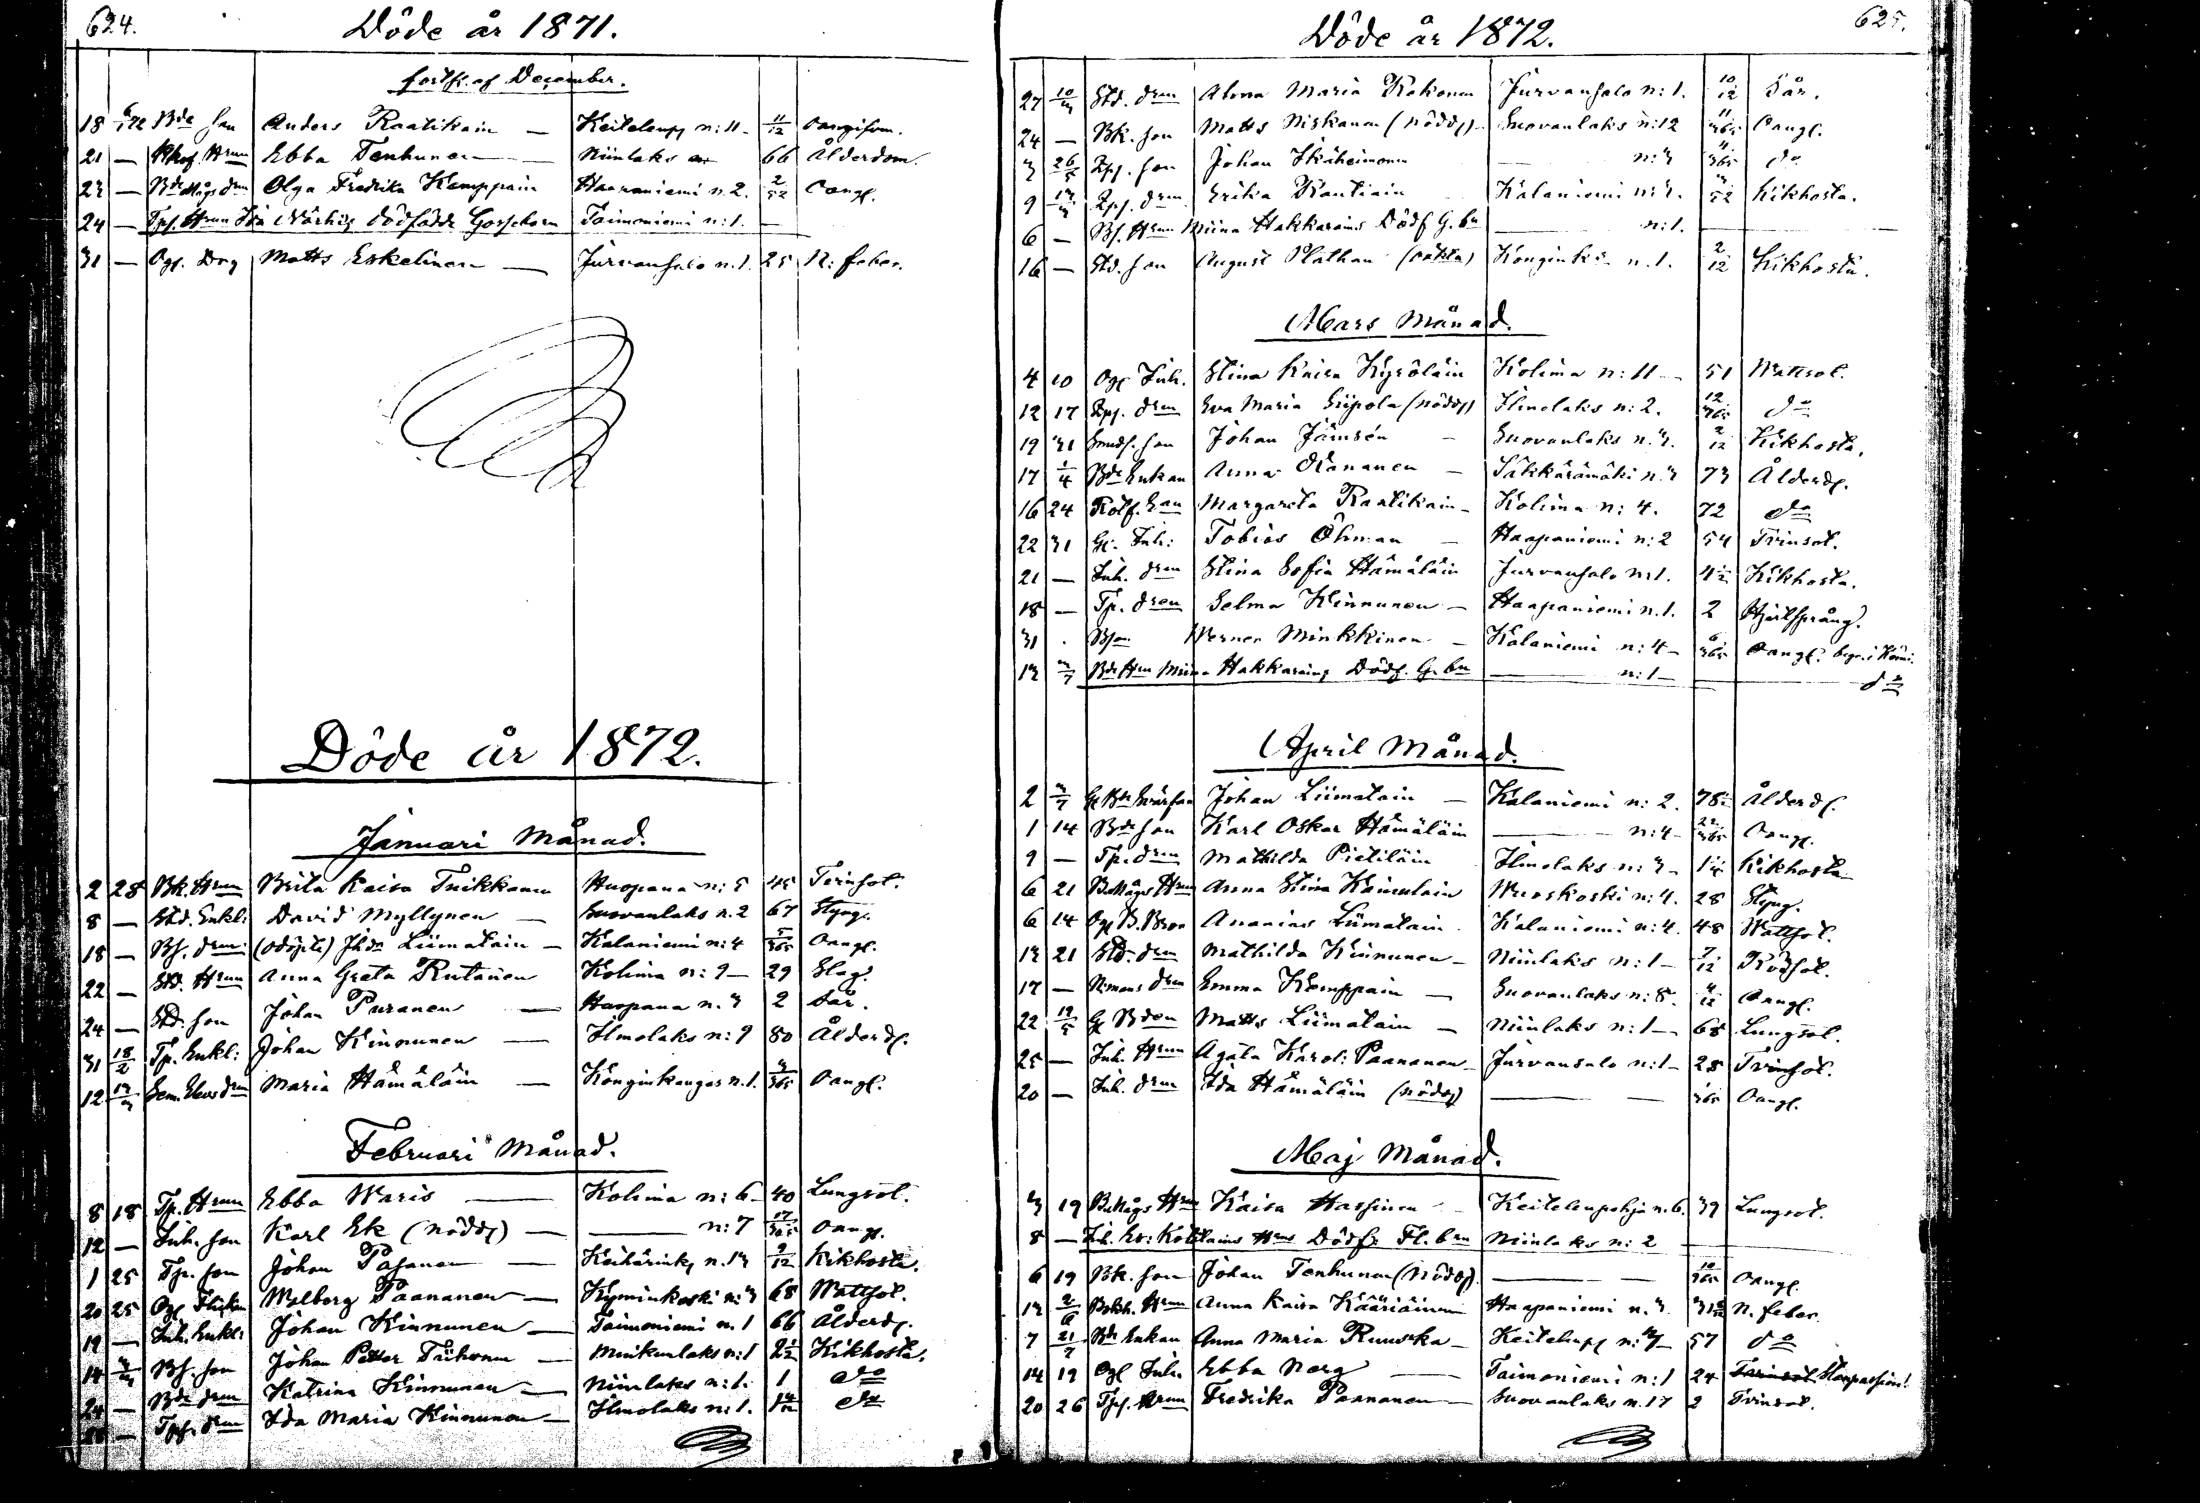 624.
Döde år 1871.
forts. af December.
18 6/1 72 Bde son Anders Raatikain — Keitelenpj n:11 11/12 oangifven.
21 — Ebba Tenhunen — Niinilaks 66 Ålderdom.
23 — Olga Fredrika Kemppain Haapaniemi n.2. 2/52 oangf.
24 — Tpf. Hrun dödfödde Gossebarn Taimoniemi n:1. —
31 — Ogf. Drg Matts Eskelinen — Jurvansalo n.1. 25 N: feber.
Döde år 1872.
Januari Månad.
2 28 Bk. Hrun Brita Kaisa Tuikkanen Huopana n:5 45 Tvinsot.
8 — Std. Enkl: David Myllynen — Suovanlaks n.2 67 Styng.
18 — Bf. drun: (odöpte) Liimatain — Kalaniemi n:4 5/365 oangf.
22 — Std. Hrun Anna Greta Rutanen Kolima n:9 — 29 Slag.
24 — Std. son Johan Puranen — Huopana n.3 2 Sår.
31 18/2 Tp. Enkl: Johan Kinnunen — Ilmolaks n:9 80 Ålderdf.
12 13/3 Maria Hämäläin — Könginkangas n.1. 3/365 oangf.
Februari Månad.
8 18 Tp. Hrun Ebba Waris — Kolima n:6 — 40 Lungsot.
12 — Inh. son Karl Ek (nöddf) — n:7 17/365 oangf.
1 25 Tpf. son Johan Pasanen — Keihärinkj n.13 9/12 Kikhosta.
20 25 Ogf. Flickan Walborg Paananen — Kyminkoski n:3 68 Wattsot.
19 — Inh. Enkl: Johan Kinnunen — Taimoniemi n.1 66 Ålderdf.
14 3/3 Bf. son Johan Petter Tiihonen — Muikunlaks n:1 2 1/2 Kikhosta.
24 — Bde drun Katrina Kinnunen — Niinilaks n:1. 1 do
— Tpf. drun Ida Maria Kinnunen — Ilmolaks n:1. do
Döde år 1872.
625.
27 10/3 Std. drun Alma Maria Kokonen Jurvansalo n:1. 10/12 Sår.
24 — Bk. son Matts Niskanen (nöddf) Suovanlaks n:12 11/365 oangf.
3 26/5 Tpf. son Johan Ikäheimonen — n:3 11/365 do
9 Tpf. drun Erika Rautiain Kalaniemi n:3. 3/52 Kikhosta.
6 — Bf. Hrun Miina Hakkarains Dödf. G. bn — n:1.
16 — Std. son August Plathan (oäkta) Könginks n.1. 2/12 Kikhosta.
Mars Månad.
4 10 Ogf. Inh. Stina Kaisa Kyröläin Kolima n:11 — 51 Wattsot.
12 17 Tpf. drun Eva Maria Siipola (nöddf) Ilmolaks n:2. 12/365 do
19 31 Smeds. son Johan Jämsén — Suovanlaks n.3. 2/12 Kikhosta.
17 1/4 Bde Enkan Anna Kananen — Säkkärämäki n.3 73 Ålderdf.
16 24 Rotf. Ean Margareta Raatikain — Kolima n:4. 72 do
22 31 Gf. Inh: Tobias Öhman — Haapaniemi n:2 54 Tvinsot.
21 — Inh. drun Stina Sofia Hämäläin Jurvansalo n:1. 4 1/2 Kikhosta.
18 — Tp. drun Selma Kinnunen — Haapaniemi n.1. 2 Hjertsprång.
31 Bson Werner Minkkinen — Kalaniemi n:4 — 6/365 oangf. begr. i Kivij.
13 3/7 Bde Hrun Miina Hakkarains Dödf. G. bn — n:1 — do
April Månad.
2 3/7 Johan Liimatain — Kalaniemi n:2. 78 Ålderdf.
1 14 Bde son Karl Oskar Hämäläin — n:4 — 22/365 oangf.
9 — Tp. drun Mathilda Pietiläin Ilmolaks n:3 — Kikhosta
6 21 B. Mågs Hrun Anna Stina Kainulain Wuoskoski n:4. 28 Styng.
6 14 Ogf. B. Bron Ananias Liimatain. Kalaniemi n:4. 48 Wattsot.
13 21 Std. drun Mathilda Kinnunen — Niinilaks n:1 — 7/12 Rödsot.
17 — drun Emma Kemppain — Suovanlaks n:8. 4/12 oangf.
22 19/5 Gf. Bden Matts Liimatain — Niinilaks n:1 — 68 Lungsot.
25 — Inh. Hrun Agata Karol: Paananen — Jurvansalo n:1 — 28 Tvinsot.
20 — Inh. drun Ida Hämäläin (nöddf) — — 1/365 oangf.
Maj Månad.
3 19 B. Mågs Hrun Kaisa Hassinen — Keitelenpohja n.6. 39 Lungsot.
8 — Inh. Hrus Dödf. Fl. bn Niinilaks n:2
6 19 Bk. son Johan Tenhunen (Nöddf). — — 10/365 oangf.
13 2/6 Bokh. Hrun Anna Kaisa Kääriäinen Haapaniemi n.3. 31 N. feber.
7 21/7 Bde Enkan Anna Maria Ruuska — Keitelenpf n:7 — 57 do
14 19 Ogf. Inh. Ebba Norg — Taimoniemi n:1 24 Tvinsot
20 26 Tpf. drun Fredrika Paananen — Suovanlaks n.17 2 Tvinsot.